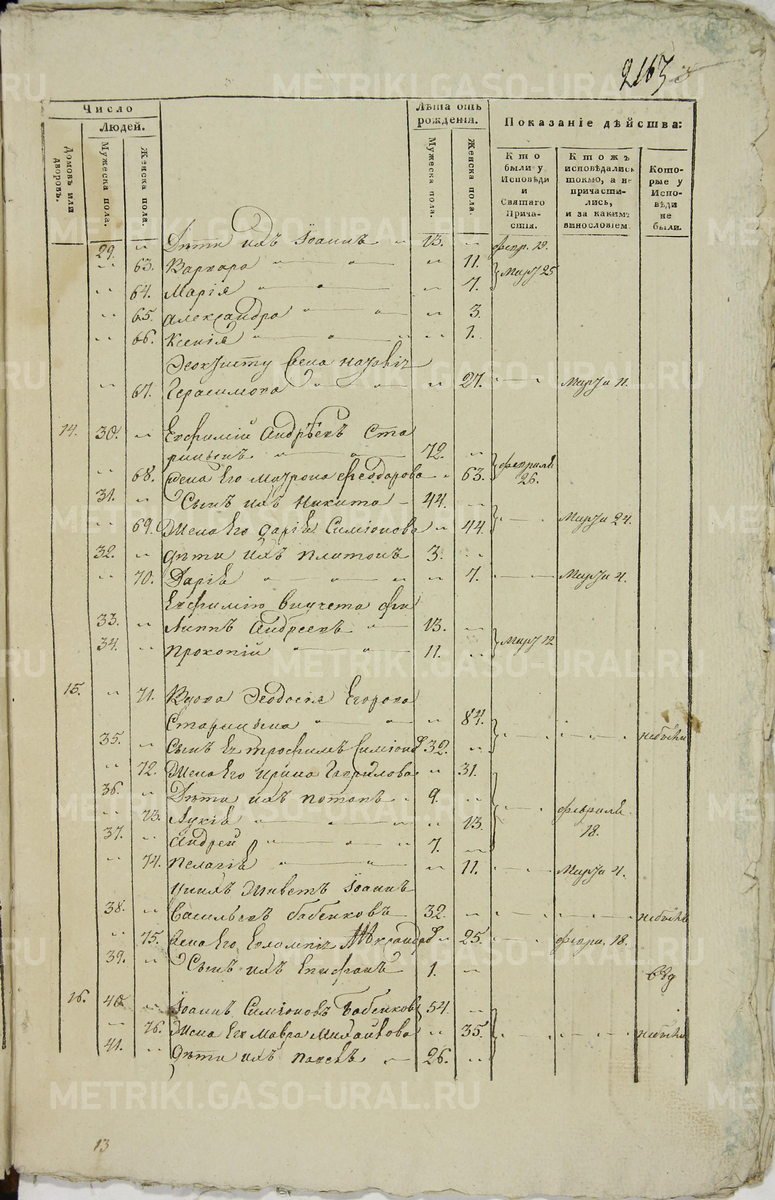 2163
Число
Людей.
Домовъ или дворовъ.
Мужеска пола.
Женска пола.
Лѣта отъ рожденія.
Мужеска пола.
Женска пола.
Показаніе дѣйства:
Кто были у Исповѣди и Святаго Причастія.
Ктожъ исповѣдались токмо, а не причастились, и за какимъ винословіем
Которые у Исповѣди не были.
29. Дѣти ихъ Іоаннъ 13.
63. Варвара 11. Март 25
64. Марія 7.
65. Александра 3
66. Ксенія 1.
67. Герасимова 27. Марта 11.
14. 30. Евфимій Андрѣевъ Ста
рицынъ 72.
68. Жена Его Матрона Феодорова 63. февраля 26.
31. Сынъ ихъ Никита 44.
69. Жена Его Дарія Симіонова 44. Марта 24.
32. Дѣти ихъ Платонъ 3.
70. Дарія 7. Марта 4.
Евфимію внучета Фи
33. липпъ Андреевъ 13.
34. Прокопій 11. Март 12
15. 71. Вдова Феодосія Егорова
Старицына 84.
35. Сынъ Ея Трофимъ 32.
72. Жена Его Ирина Гаврилова 31.
36. Дѣти ихъ Потапъ 9.
73. Лукія 13. февраля 18.
37. Андрей 7.
74. Пелагія 11. Марта 4.
У нихъ живетъ Іоаннъ
38. Васильевъ Бабенковъ 32.
75. Жена Его 25. 18.
39. Сынъ ихъ Епифанъ 1.
16. 40. Іоаннъ Симіоновъ Бабенков 54.
76. Жена Его Мавра Михайлова 35.
41. Дѣти ихъ Павелъ 26.
13
METRIKI.GASO-URAL.RU